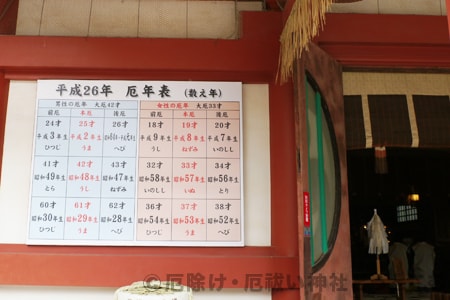 平成26年 厄年表 (数え年)
男性の厄年 大厄42才
女性の厄年 大厄33才
前厄 本厄 後厄
前厄 本厄 後厄
24才 25才 26才
平成3年生 平成2年生
ひつじ うま へび
18才 19才 20才
平成9年生 平成8年生 平成7年生
うし ねずみ いのしし
41才 42才 43才
昭和49年生 昭和48年生 昭和47年生
とら うし ねずみ
32才 33才 34才
昭和58年生 昭和57年生 昭和56年生
いのしし いぬ とり
60才 61才 62才
昭和30年生 昭和29年生 昭和28年生
ひつじ うま へび
36才 37才 38才
昭和54年生 昭和53年生 昭和52年生
ひつじ うま へび
©厄除け・厄祓い神社